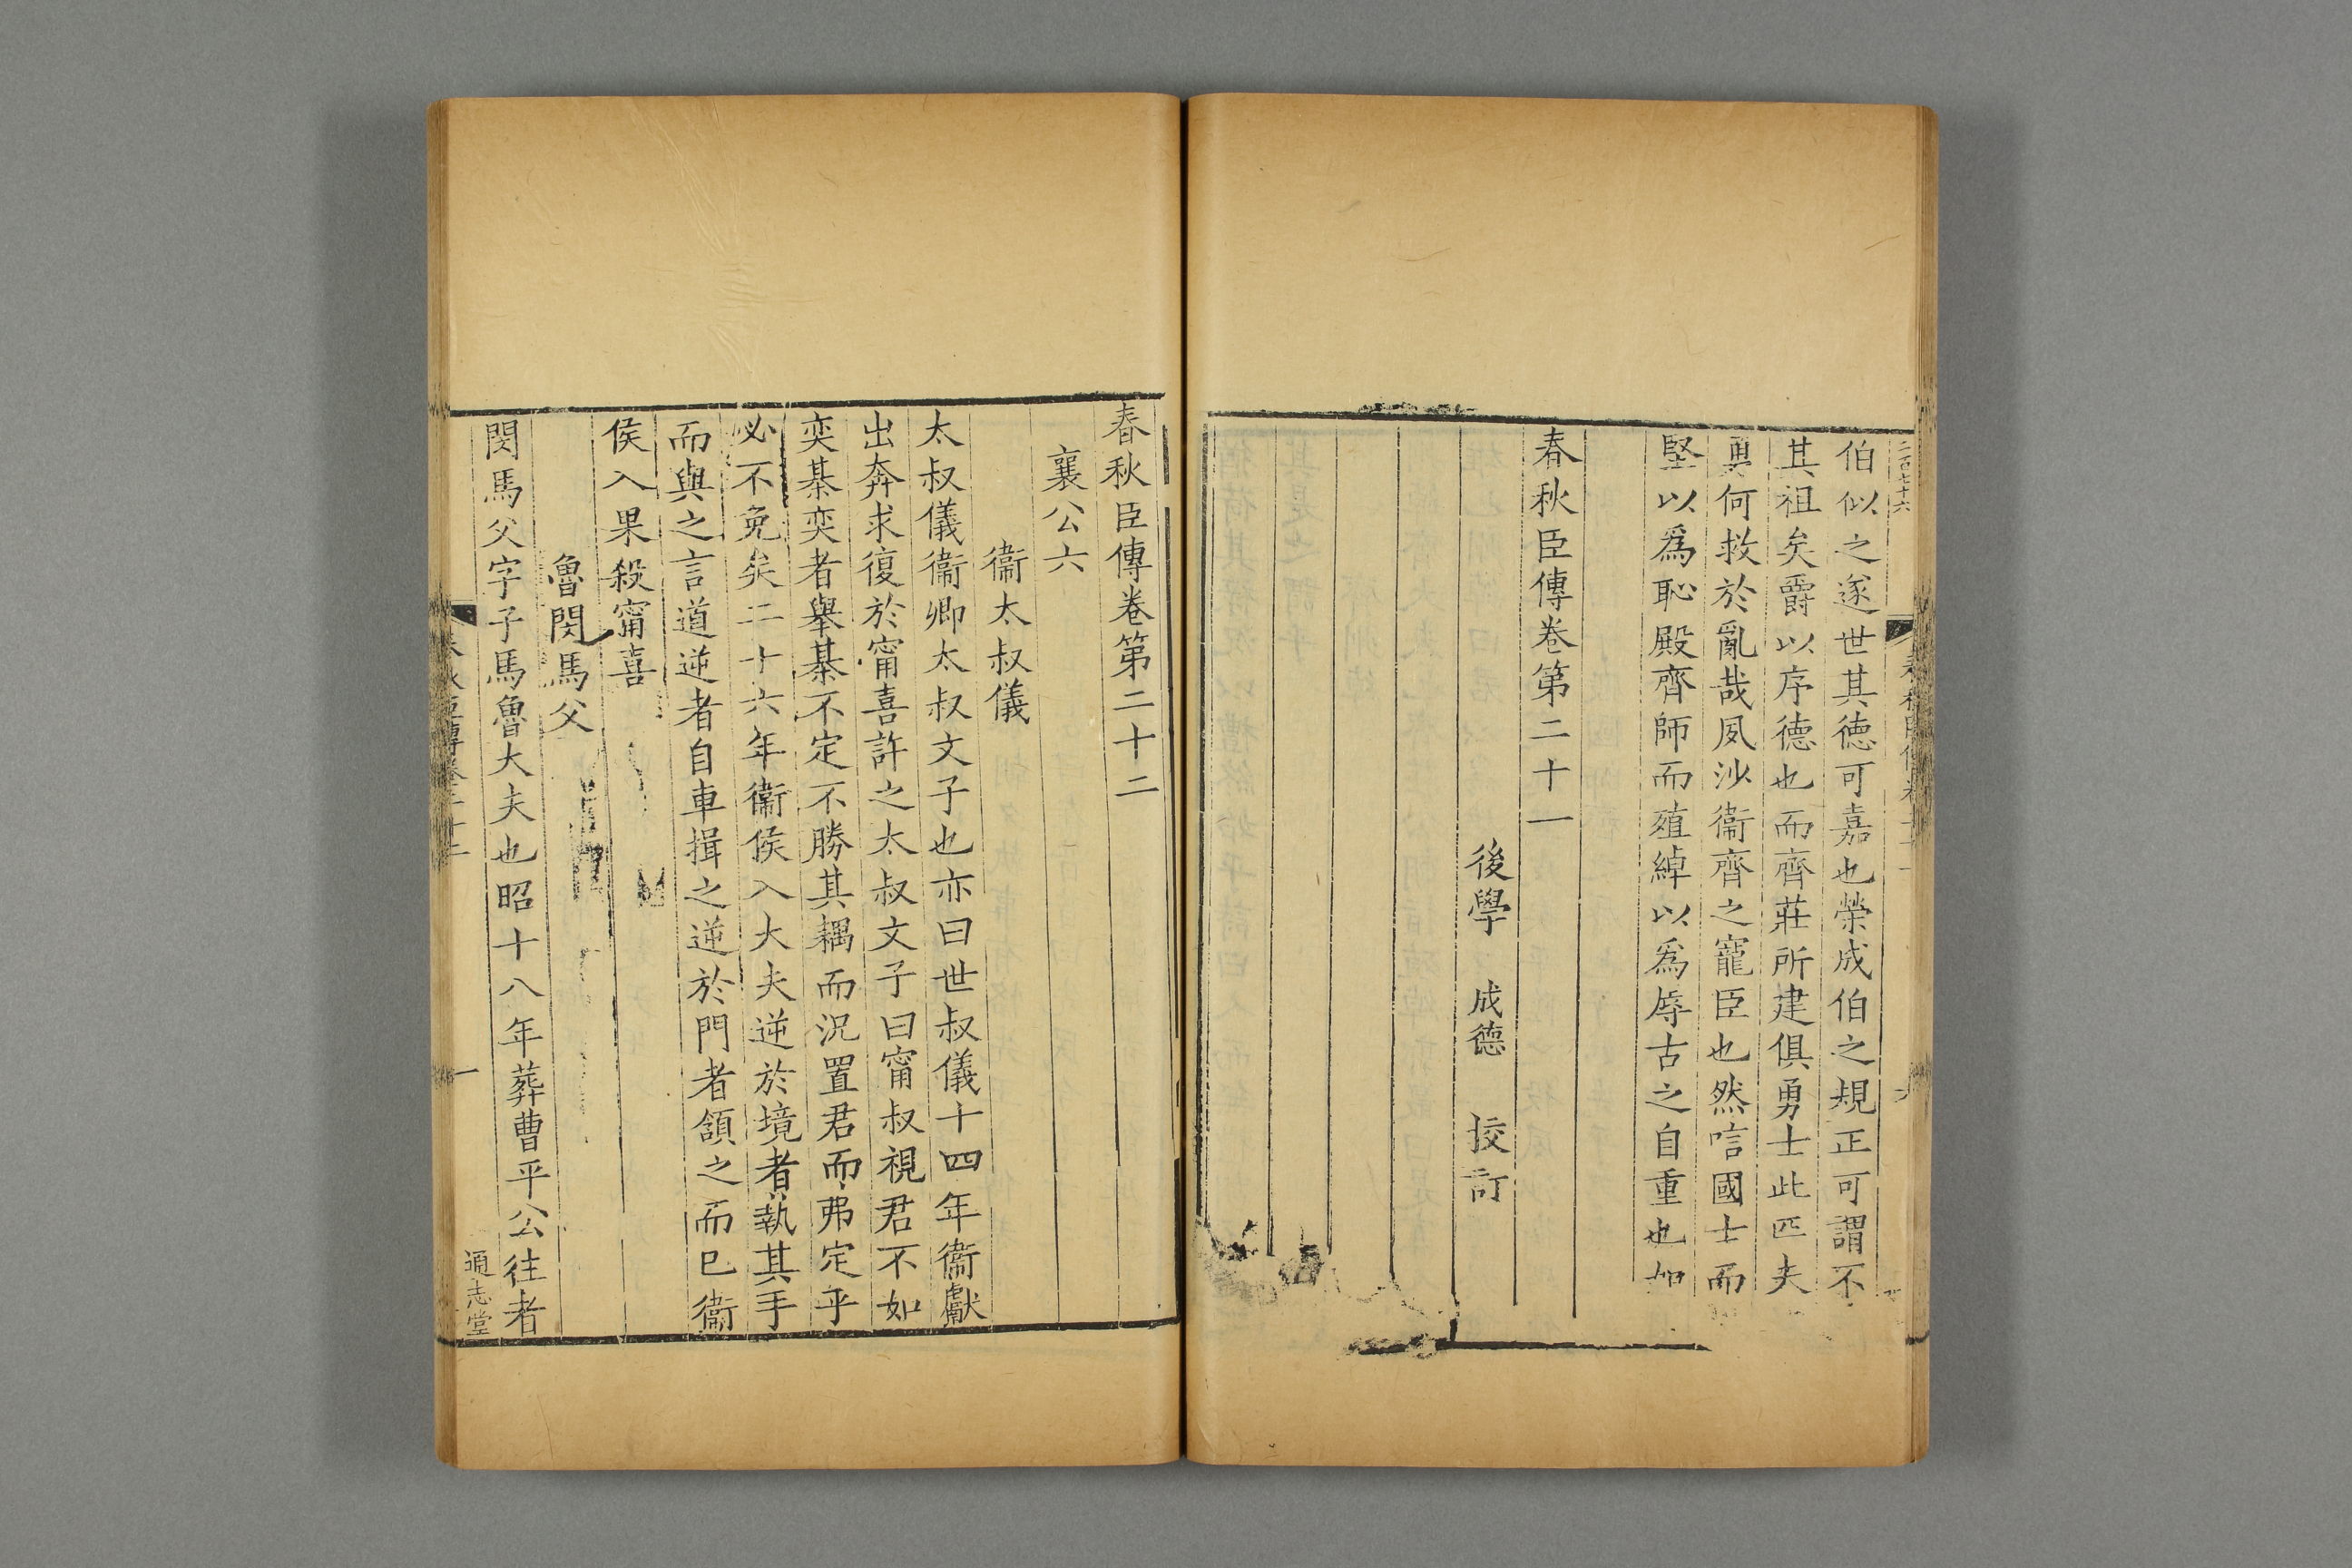 二百七十六
伯似之遂世其德可嘉也榮成伯之規正可謂不
其祖矣爵以序德也而齊莊所建俱勇士此匹夫
勇何救於亂哉夙沙衞齊之寵臣也然唁國士而
堅以爲恥殿齊師而殖綽以爲辱古之自重也如
春秋臣傳卷第二十一
後學 成德 挍訂
春秋臣傳卷第二十二
襄公六
衞太叔儀
太叔儀衞卿太叔文子也亦曰世叔儀十四年衞獻
出奔求復於甯喜許之太叔文子曰甯叔視君不如
奕棊奕者舉棊不定不勝其耦而況置君而弗定乎
必不免矣二十六年衞侯入大夫逆於境者執其手
而與之言道逆者自車揖之逆於門者頷之而已衞
侯入果殺甯喜
魯閔馬父
閔馬父字子馬魯大夫也昭十八年葬曹平公往者
春秋臣傳卷二十二
一
通志堂